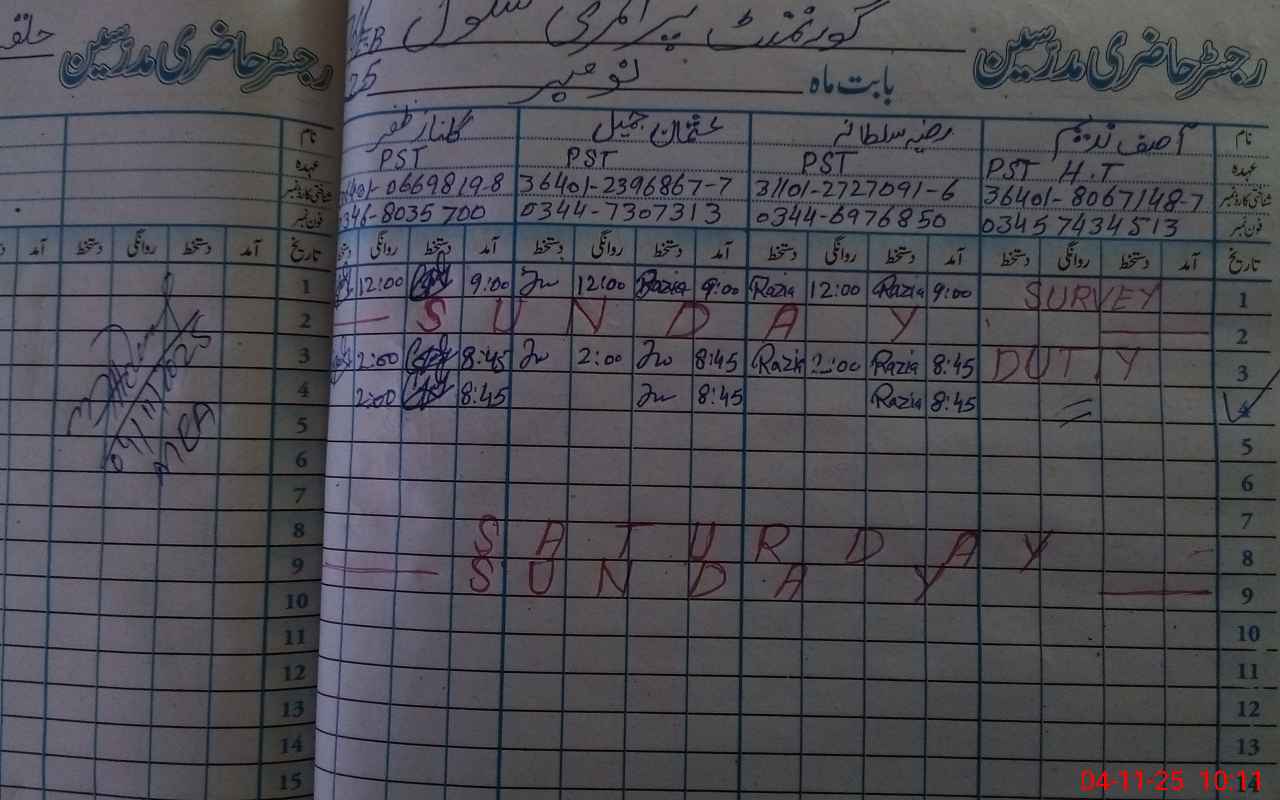 گورنمنٹ پرائمری سکول EB
رجسٹر حاضری مدرسین
بابت ماہ نومبر 25
نام آصف ندیم رضیہ سلطانہ عثمان جمیل گلناز ظفر
عہدہ PST H.T PST PST PST
شناختی کارڈ نمبر 36401-8067148-7 31101-2727091-6 36401-2396867-7 36401-0669819-8
فون نمبر 0345 7434513 0344-6976850 0344-7307313 0346-8035700
تاریخ آمد دستخط روانگی دستخط آمد دستخط روانگی دستخط آمد دستخط روانگی دستخط آمد دستخط روانگی دستخط
1 SURVEY 9:00 Razia 12:00 Razia 9:00 12:00 9:00 12:00
2 SUNDAY
3 DUTY 8:45 Razia 2:00 Razia 8:45 2:00 8:45 2:00
4 = 8:45 Razia 8:45 8:45 2:00
5
6
7
8 SATURDAY
9 SUNDAY
10
11
12
13
14
حلقہ
رجسٹر حاضری مدرسین
نام
عہدہ
شناختی کارڈ نمبر
فون نمبر
تاریخ آمد دستخط روانگی دستخط آمد
1
2
3
4
5
6
7
8
9
10
11
12
13
14
15
04-11-25 10:11